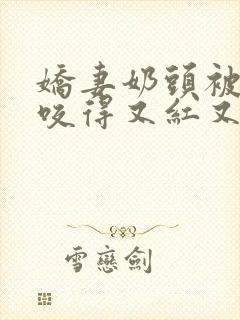 嬌妻奶頭被
咬得又紅又
雪戀劍